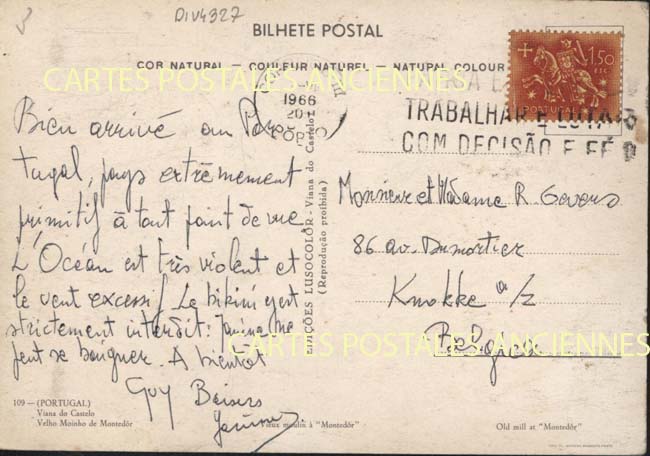 3
DIV4327
BILHETE POSTAL
COR NATURAL — COULEUR NATUREL — NATUPAL COLOUR
CARTES POSTALES ANCIENNES
1,50
PORTUGAL
1966
TRABALHAR E LUTAR
COM DECISÃO E FÉ
Bien arrivé au Por
tugal, pays extrêmement
primitif à tout point de vue
L'Océan est très violent et
le vent excessif. Le bikini y est
strictement interdit: Janina ne
peut se baigner. A bientôt
Guy
EDIÇÕES LUSOCOLÔR - Viana do Castelo
(Reprodução proibida)
Monsieur et Madame R. Gevers
86 av. Dumortier
Knokke a/z
Belgica
CARTES POSTALES ANCIENNES
109 — (PORTUGAL)
Viana do Castelo
Velho Moinho de Montedôr
Vieux moulin à "Montedôr"
Old mill at "Montedôr"